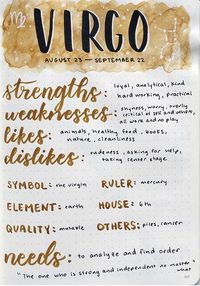 VIRGO
AUGUST 23 — SEPTEMBER 22
strengths: loyal, analytical, kind
hard working, practical
weaknesses: shyness, worry, overly
critical of self and others,
all work and no play
likes: animals, healthy food, books,
nature, cleanliness
dislikes: rudeness, asking for help,
taking center stage
SYMBOL: the virgin RULER: mercury
ELEMENT: earth HOUSE: 6th
QUALITY: mutable OTHERS: pisces, cancer
needs: to analyze and find order
"The one who is strong and independent no matter
what"